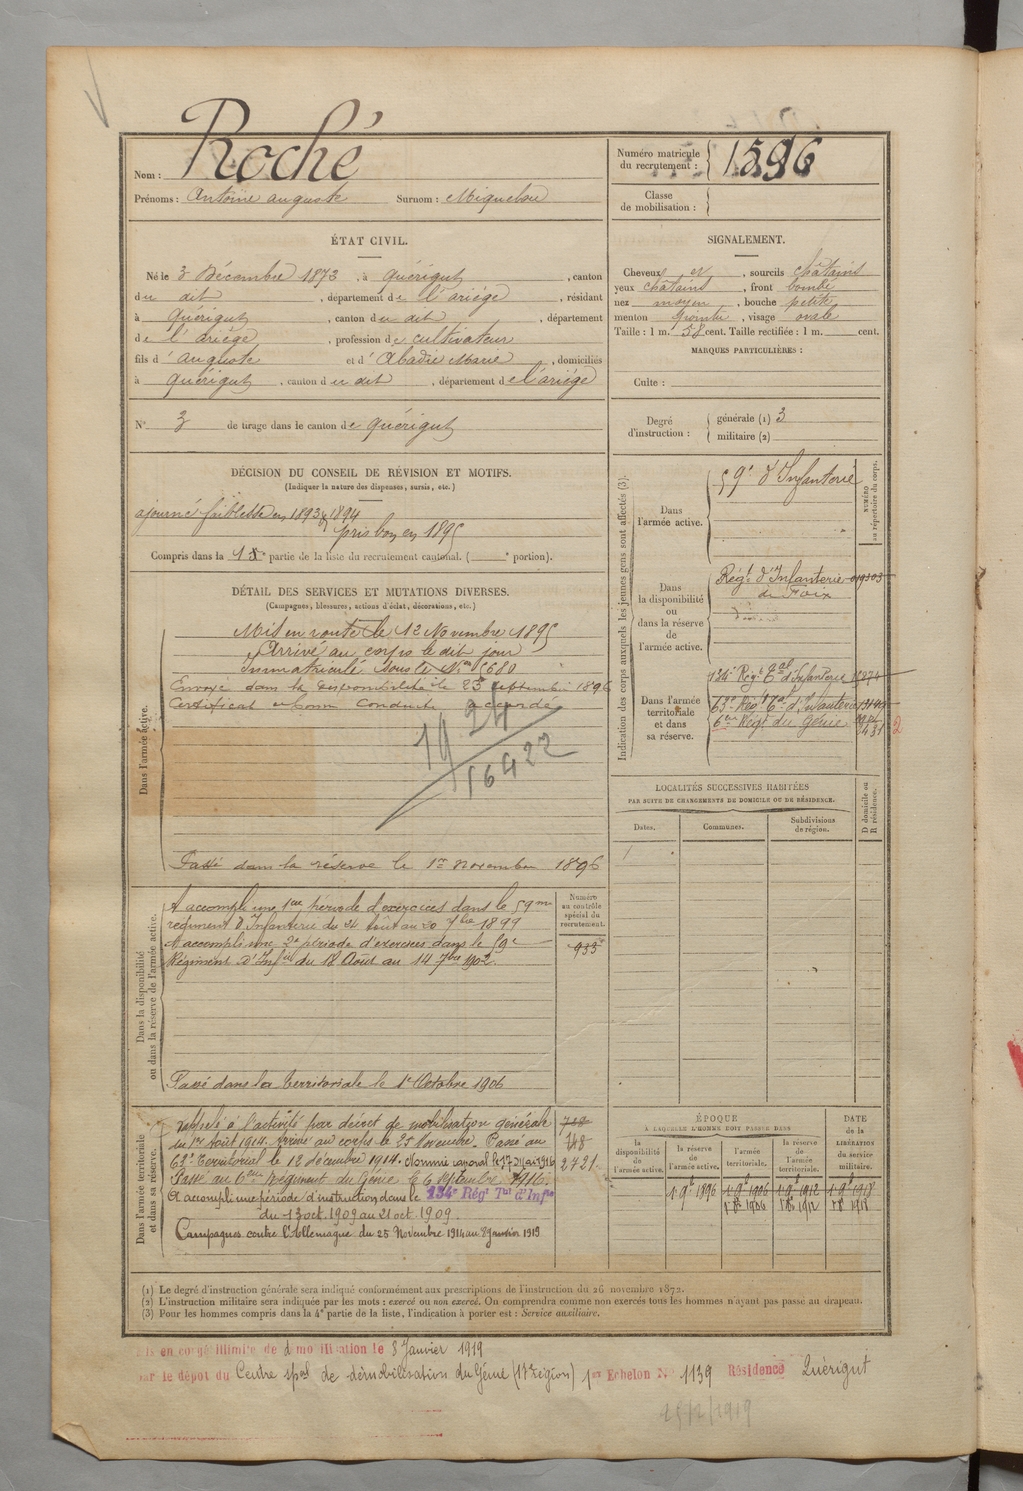 Nom : Roché
Prénoms : Antoine Auguste Surnom : Miquelou
ÉTAT CIVIL.
Né le 3 Décembre 1873, à Quérigut, canton
du dit, département de l'ariège, résidant
à Quérigut, canton du dit, département
de l'ariège, profession de cultivateur
fils d'auguste et d'Abadie Marie, domiciliés
à Quérigut, canton du dit, département de l'ariège
N° 3 de tirage dans le canton de Quérigut
DÉCISION DU CONSEIL DE RÉVISION ET MOTIFS.
(Indiquer la nature des dispenses, sursis, etc.)
ajourné faiblesse en 1893 & 1894
pris bon en 1895
Compris dans la 1re partie de la liste du recrutement cantonal. ( e portion).
DÉTAIL DES SERVICES ET MUTATIONS DIVERSES.
(Campagnes, blessures, actions d'éclat, décorations, etc.)
Dans l'armée active.
Mis en route le 12 Novembre 1895
Arrivé au corps le dit jour
Immatriculé sous le No
Envoyé dans la disponibilité le 23 septembre 1896
Certificat de bonne conduite accordé
1924
16422
Passé dans la réserve le 1er novembre 1896
Dans la disponibilité
ou dans la réserve de l'armée active.
A accompli une 1ere période d'exercices dans le 59me
régiment d'Infanterie du 24 août au 20 7bre 1899
A accompli une 2e période d'exercices dans le 59e
Régiment d'Infie du 18 Août au 14 7bre 1902.
Passé dans la territoriale le 1er Octobre 1906
Numéro
au contrôle
spécial du
recrutement.
933
Dans l'armée territoriale
et dans sa réserve.
Rappelé à l'activité par décret de mobilisation générale
du 1er Août 1914. Arrivé au corps le 25 Novembre. Passé au
63e Territorial le 12 décembre 1914. Nommé caporal le 17 Mai 1916
Passé au 6eme Régiment du Génie le 6 septembre 1916.
A accompli une période d'instruction dans le 134e Régt Tal d'Infie
du 13 oct. 1909 au 21 oct. 1909.
Campagnes contre l'Allemagne du 25 Novembre 1914 au 8 Janvier 1919
748
748
2721
Numéro matricule
du recrutement : 1596
Classe
de mobilisation :
SIGNALEMENT.
Cheveux et, sourcils châtains
yeux châtains, front bombé
nez moyen, bouche petite
menton pointu, visage ovale
Taille : 1 m. 58 cent. Taille rectifiée : 1 m. cent.
MARQUES PARTICULIÈRES :
Culte :
Degré
d'instruction :
générale (1) 3
militaire (2)
Indication des corps auxquels les jeunes gens sont affectés (3).
NUMÉRO
au répertoire du corps.
Dans
l'armée active.
59e d'Infanterie
Dans
la disponibilité
ou
dans la réserve
de
l'armée active.
Régt d'Infanterie
de Foix
Dans l'armée
territoriale
et dans
sa réserve.
134e Régt Tal d'Infanterie
63e Régt Tal d'Infanterie
6me Régt du Génie
2
LOCALITÉS SUCCESSIVES HABITÉES
PAR SUITE DE CHANGEMENTS DE DOMICILE OU DE RÉSIDENCE.
Dates. Communes. Subdivisions
de région.
D domicile ou
R résidence.
ÉPOQUE
A LAQUELLE L'HOMME DOIT PASSER DANS
la
disponibilité
de
l'armée active.
la réserve
de
l'armée active.
l'armée
territoriale.
la réserve
de
l'armée
territoriale.
DATE
de la
LIBÉRATION
du service
militaire.
1 9e 1896 1 9e 1906 1 9e 1912 1 9e 1918
1 8e 1906 1 8e 1912 1 8e 1918
(1) Le degré d'instruction générale sera indiqué conformément aux prescriptions de l'instruction du 26 novembre 1872.
(2) L'instruction militaire sera indiquée par les mots : exercé ou non exercé. On comprendra comme non exercés tous les hommes n'ayant pas passé au drapeau.
(3) Pour les hommes compris dans la 4e partie de la liste, l'indication à porter est : Service auxiliaire.
is en congé illimité de démobilisation le 8 Janvier 1919
par le dépôt du Centre spal de démobilisation du Génie (17e région) 1er Echelon N° 1139 Résidence Quérigut
25/2/1919